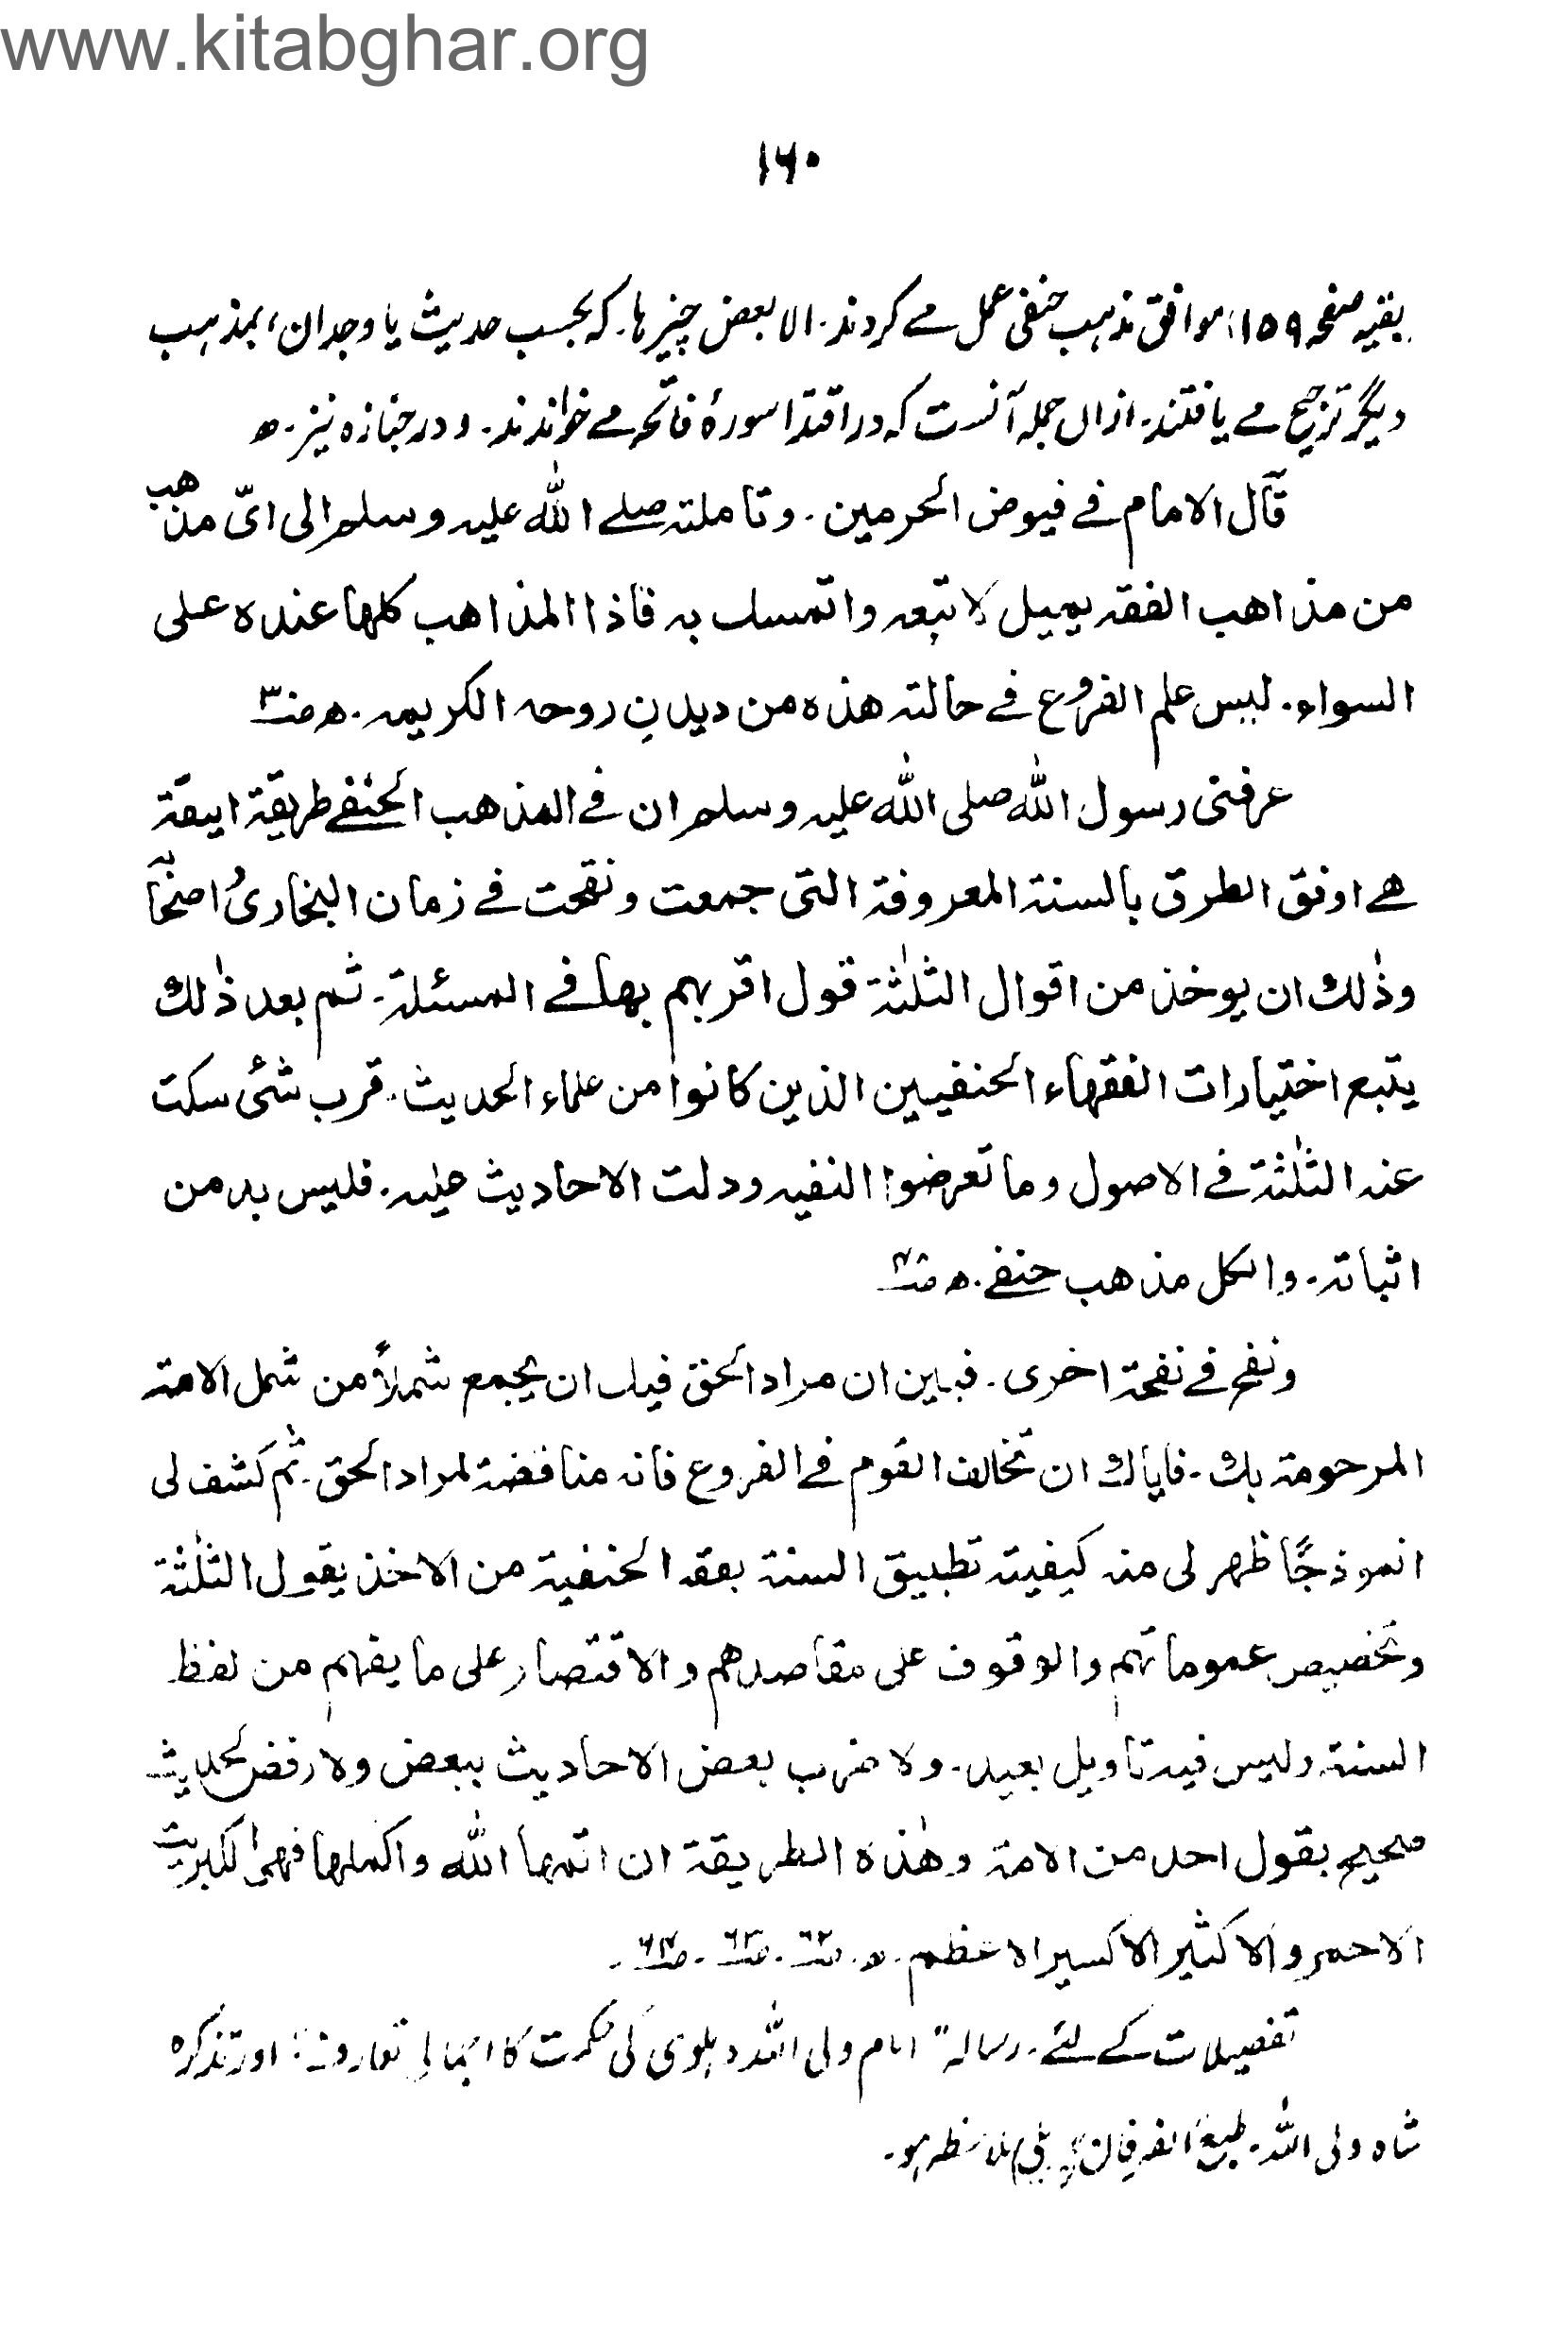 www.kitabghar.org
۱۶۰
بقیہ صفحہ ۱۵۹؛ موافق مذہب حنفی عمل مے کردند۔ الا بعض چیزہا۔ کہ بحسب حدیث یا وجدان، بمذہب
دیگر ترجیح مے یافتند۔ ازاں جملہ آنست کہ در اقتدا سورۂ فاتحہ مے خواندند۔ و در جنازہ نیز۔ ھ
قال الامام فے فیوض الحرمین۔ وتاملتہ صلے اللہ علیہ وسلم الی ایّ مذھب
من مذاھب الفقہ یمیل لاتبعہ واتمسک بہ فاذا المذاھب کلھا عندہ علی
السواء۔ لیس علم الفروع فے حالتہ ھذہ من دیدن روحہ الکریمہ۔ ھ
عرفنی رسول اللہ صلی اللہ علیہ وسلم ان فے المذھب الحنفے طریقۃ انیقۃ
ھے اوفق الطرق بالسنۃ المعروفۃ التی جمعت ونقحت فے زمان البخاریؒ واصحابہ
وذٰلک ان یوخذ من اقوال الثلٰثۃ قول اقربہم بھا فے المسئلۃ۔ ثم بعد ذٰلک
یتبع اختیارات الفقہاء الحنفیین الذین کانوا من علماء الحدیث۔ فرب شئ سکت
عنہ الثلٰثۃ فے الاصول وما تعرضوا النفیہ ودلت الاحادیث علیہ۔ فلیس بد من
اثباتہ۔ والکل مذھب حنفے۔ ھ
ونفخ فے نفحۃ اخری۔ فبین ان مراد الحق فیک ان یجمع شملاً من شمل الامۃ
المرحومۃ بک۔ فایاک ان تخالف القوم فے الفروع فانہ مناقضۃ لمراد الحق۔ ثم کشف لی
انموذجًا ظہر لی منہ کیفیۃ تطبیق السنۃ بفقہ الحنفیۃ من الاخذ بقول الثلٰثۃ
وتخصیص عموماتہم والوقوف علی مقاصدھم والاقتصار علی ما یفہم من لفظ
السنۃ ولیس فیہ تاویل بعید۔ ولا ضرب بعض الاحادیث ببعض ولا رفض لحدیث
صحیح بقول احد من الامۃ وھٰذہ الطریقۃ ان اتمہا اللہ واکملہا فھی الکبریت
الاحمر والاکثیر الاکسیر الاعظم۔ ھ۔ ص۶۲۔ ص۶۳۔ ص۶۴۔
تفصیلات کے لئے۔ رسالہ "امام ولی اللہ دہلوی کی حکمت کا اجمالی تعارف" اور تذکرہ
شاہ ولی اللہ۔ طبع الفرقان بریلی ملاحظہ ہو۔